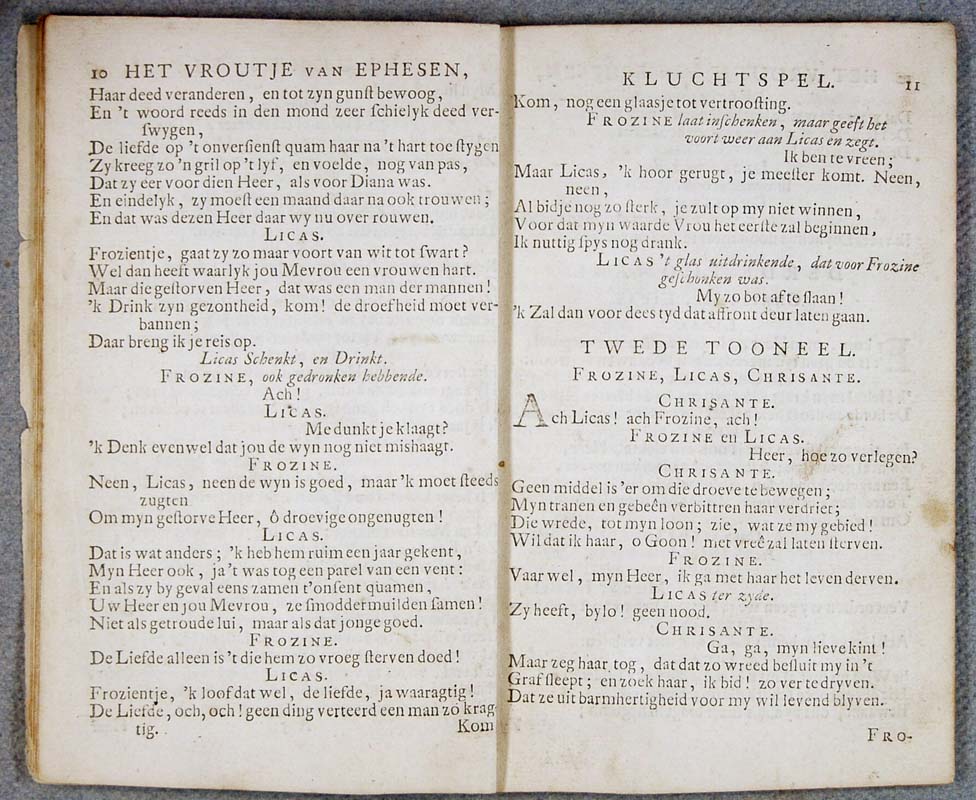 10 HET VROUTJE VAN EPHESEN,
Haar deed veranderen, en tot zyn gunſt bewoog,
En 't woord reeds in den mond zeer ſchielyk deed ver-
ſwygen,
De liefde op 't onverſienſt quam haar na 't hart toe ſtygen
Zy kreeg zo 'n gril op 't lyf, en voelde, nog van pas,
Dat zy eer voor dien Heer, als voor Diana was.
En eindelyk, zy moeſt een maand daar na ook trouwen;
En dat was dezen Heer daar wy nu over rouwen.
LICAS.
Frozientje, gaat zy zo maar voort van wit tot ſwart?
Wel dan heeft waarlyk jou Mevrou een vrouwen hart.
Maar die geſtorven Heer, dat was een man der mannen!
'k Drink zyn gezontheid, kom! de droefheid moet ver-
bannen;
Daar breng ik je reis op.
Licas Schenkt, en Drinkt.
FROZINE, ook gedronken hebbende.
Ach!
LICAS.
Me dunkt je klaagt?
'k Denk evenwel dat jou de wyn nog niet mishaagt.
FROZINE.
Neen, Licas, neen de wyn is goed, maar 'k moet ſteeds
zugten
Om myn geſtorve Heer, ô droevige ongenugten!
LICAS.
Dat is wat anders; 'k heb hem ruim een jaar gekent,
Myn Heer ook, ja 't was tog een parel van een vent:
En als zy by geval eens zamen t'onſent quamen,
Uw Heer en jou Mevrou, ze ſmoddermuilden ſamen!
Niet als getroude lui, maar als dat jonge goed.
FROZINE.
De Liefde alleen is 't die hem zo vroeg ſterven doed!
LICAS.
Frozientje, 'k loof dat wel, de liefde, ja waaragtig!
De Liefde, och, och! geen ding verteerd een man zo krag-
tig.
Kom
KLUCHTSPEL. 11
Kom, nog een glaasje tot vertrooſting.
FROZINE laat inſchenken, maar geeft het
voort weer aan Licas en zegt.
Ik ben te vreen;
Maar Licas, 'k hoor gerugt, je meeſter komt. Neen,
neen,
Al bid je nog zo ſterk, je zult op my niet winnen,
Voor dat myn waarde Vrou het eerſte zal beginnen,
Ik nuttig ſpys nog drank.
LICAS 't glas uitdrinkende, dat voor Frozine
geſchonken was.
My zo bot af te ſlaan!
'k Zal dan voor dees tyd dat affront deur laten gaan.
TWEDE TOONEEL.
FROZINE, LICAS, CHRISANTE.
CHRISANTE.
Ach Licas! ach Frozine, ach!
FROZINE en LICAS.
Heer, hoe zo verlegen?
CHRISANTE.
Geen middel is 'er om die droeve te bewegen;
Myn tranen en gebeên verbittren haar verdriet;
Die wrede, tot myn loon; zie, wat ze my gebied!
Wil dat ik haar, o Goon! met vreê zal laten ſterven.
FROZINE.
Vaar wel, myn Heer, ik ga met haar het leven derven.
LICAS ter zyde.
Zy heeft, bylo! geen nood.
CHRISANTE.
Ga, ga, myn lieve kint!
Maar zeg haar tog, dat dat zo wreed beſluit my in 't
Graf ſleept; en zoek haar, ik bid! zo ver te dryven.
Dat ze uit barmhertigheid voor my wil levend blyven.
FRO-